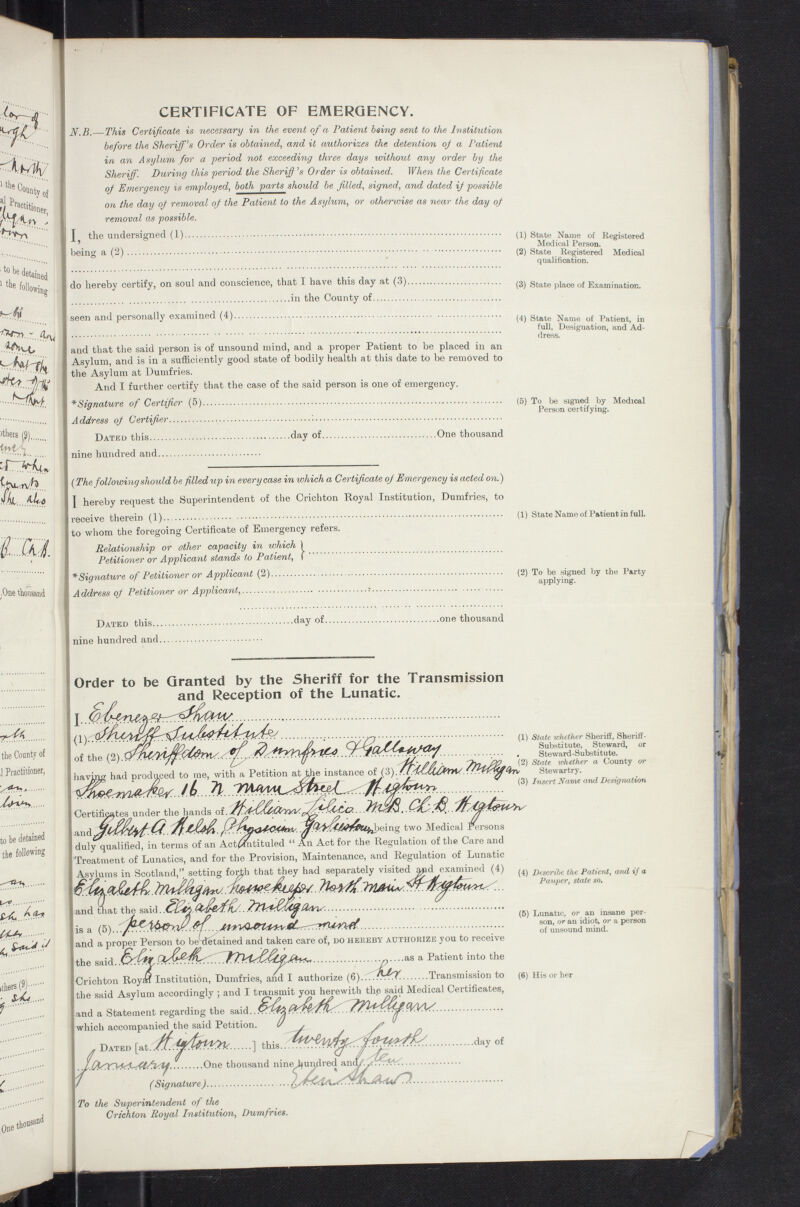 CERTIFICATE OF EMERGENCY.
N.B.—This Certificate is necessary in the event of a Patient being sent to the Institution
before the Sheriff's Order is obtained, and it authorizes the detention of a Patient
in an Asylum for a period not exceeding three days without any order by the
Sheriff. During this period the Sheriff's Order is obtained. When the Certificate
of Emergency is employed, both parts should be filled, signed, and dated if possible
on the day of removal of the Patient to the Asylum, or otherwise as near the day of
removal as possible.
I, the undersigned (1)
(1) State Name of Registered
Medical Person.
being a (2)
(2) State Registered Medical
qualification.
do hereby certify, on soul and conscience, that I have this day at (3)
(3) State place of Examination.
in the County of
seen and personally examined (4)
(4) State Name of Patient, in
full, Designation, and Ad-
dress.
and that the said person is of unsound mind, and a proper Patient to be placed in an
Asylum, and is in a sufficiently good state of bodily health at this date to be removed to
the Asylum at Dumfries.
And I further certify that the case of the said person is one of emergency.
*Signature of Certifier (5)
(5) To be signed by Medical
Person certifying.
Address of Certifier
DATED this day of One thousand
nine hundred and
(The following should be filled up in every case in which a Certificate of Emergency is acted on.)
I hereby request the Superintendent of the Crichton Royal Institution, Dumfries, to
receive therein (1)
(1) State Name of Patient in full.
to whom the foregoing Certificate of Emergency refers.
Relationship or other capacity in which
Petitioner or Applicant stands to Patient,
*Signature of Petitioner or Applicant (2)
(2) To be signed by the Party
applying.
Address of Petitioner or Applicant,
DATED this day of one thousand
nine hundred and
Order to be Granted by the Sheriff for the Transmission
and Reception of the Lunatic.
I Ebenezer Shaw
(1) Sheriff Substitute
(1) State whether Sheriff, Sheriff-
Substitute, Steward, or
Steward-Substitute.
of the (2) Sheriffdom of Dumfries & Galloway
(2) State whether a County or
Stewartry.
having had produced to me, with a Petition at the instance of (3) William Milligan
(3) Insert Name and Designation
Shoemaker 16 N Main Street Wigtown
Certificates under the hands of William Lilico M.B. Ch.B. Wigtown
and Gilbert A Welsh, Physician Garlieston being two Medical Persons
duly qualified, in terms of an Act intituled "An Act for the Regulation of the Care and
Treatment of Lunatics, and for the Provision, Maintenance, and Regulation of Lunatic
Asylums in Scotland," setting forth that they had separately visited and examined (4)
(4) Describe the Patient, and if a
Pauper, state so.
Elizabeth Milligan housekeeper North Main St Wigtown
and that the said Elizabeth Milligan
is a (5) person of unsound mind
(5) Lunatic, or an insane per-
son, or an idiot, or a person
of unsound mind.
and a proper Person to be detained and taken care of, DO HEREBY AUTHORIZE you to receive
the said Elizabeth Milligan as a Patient into the
Crichton Royal Institution, Dumfries, and I authorize (6) her Transmission to
(6) His or her
the said Asylum accordingly; and I transmit you herewith the said Medical Certificates,
and a Statement regarding the said Elizabeth Milligan
which accompanied the said Petition.
DATED [at Wigtown ] this twenty fourth day of
January One thousand nine hundred and ten
(Signature) Eben Shaw
To the Superintendent of the
Crichton Royal Institution, Dumfries.